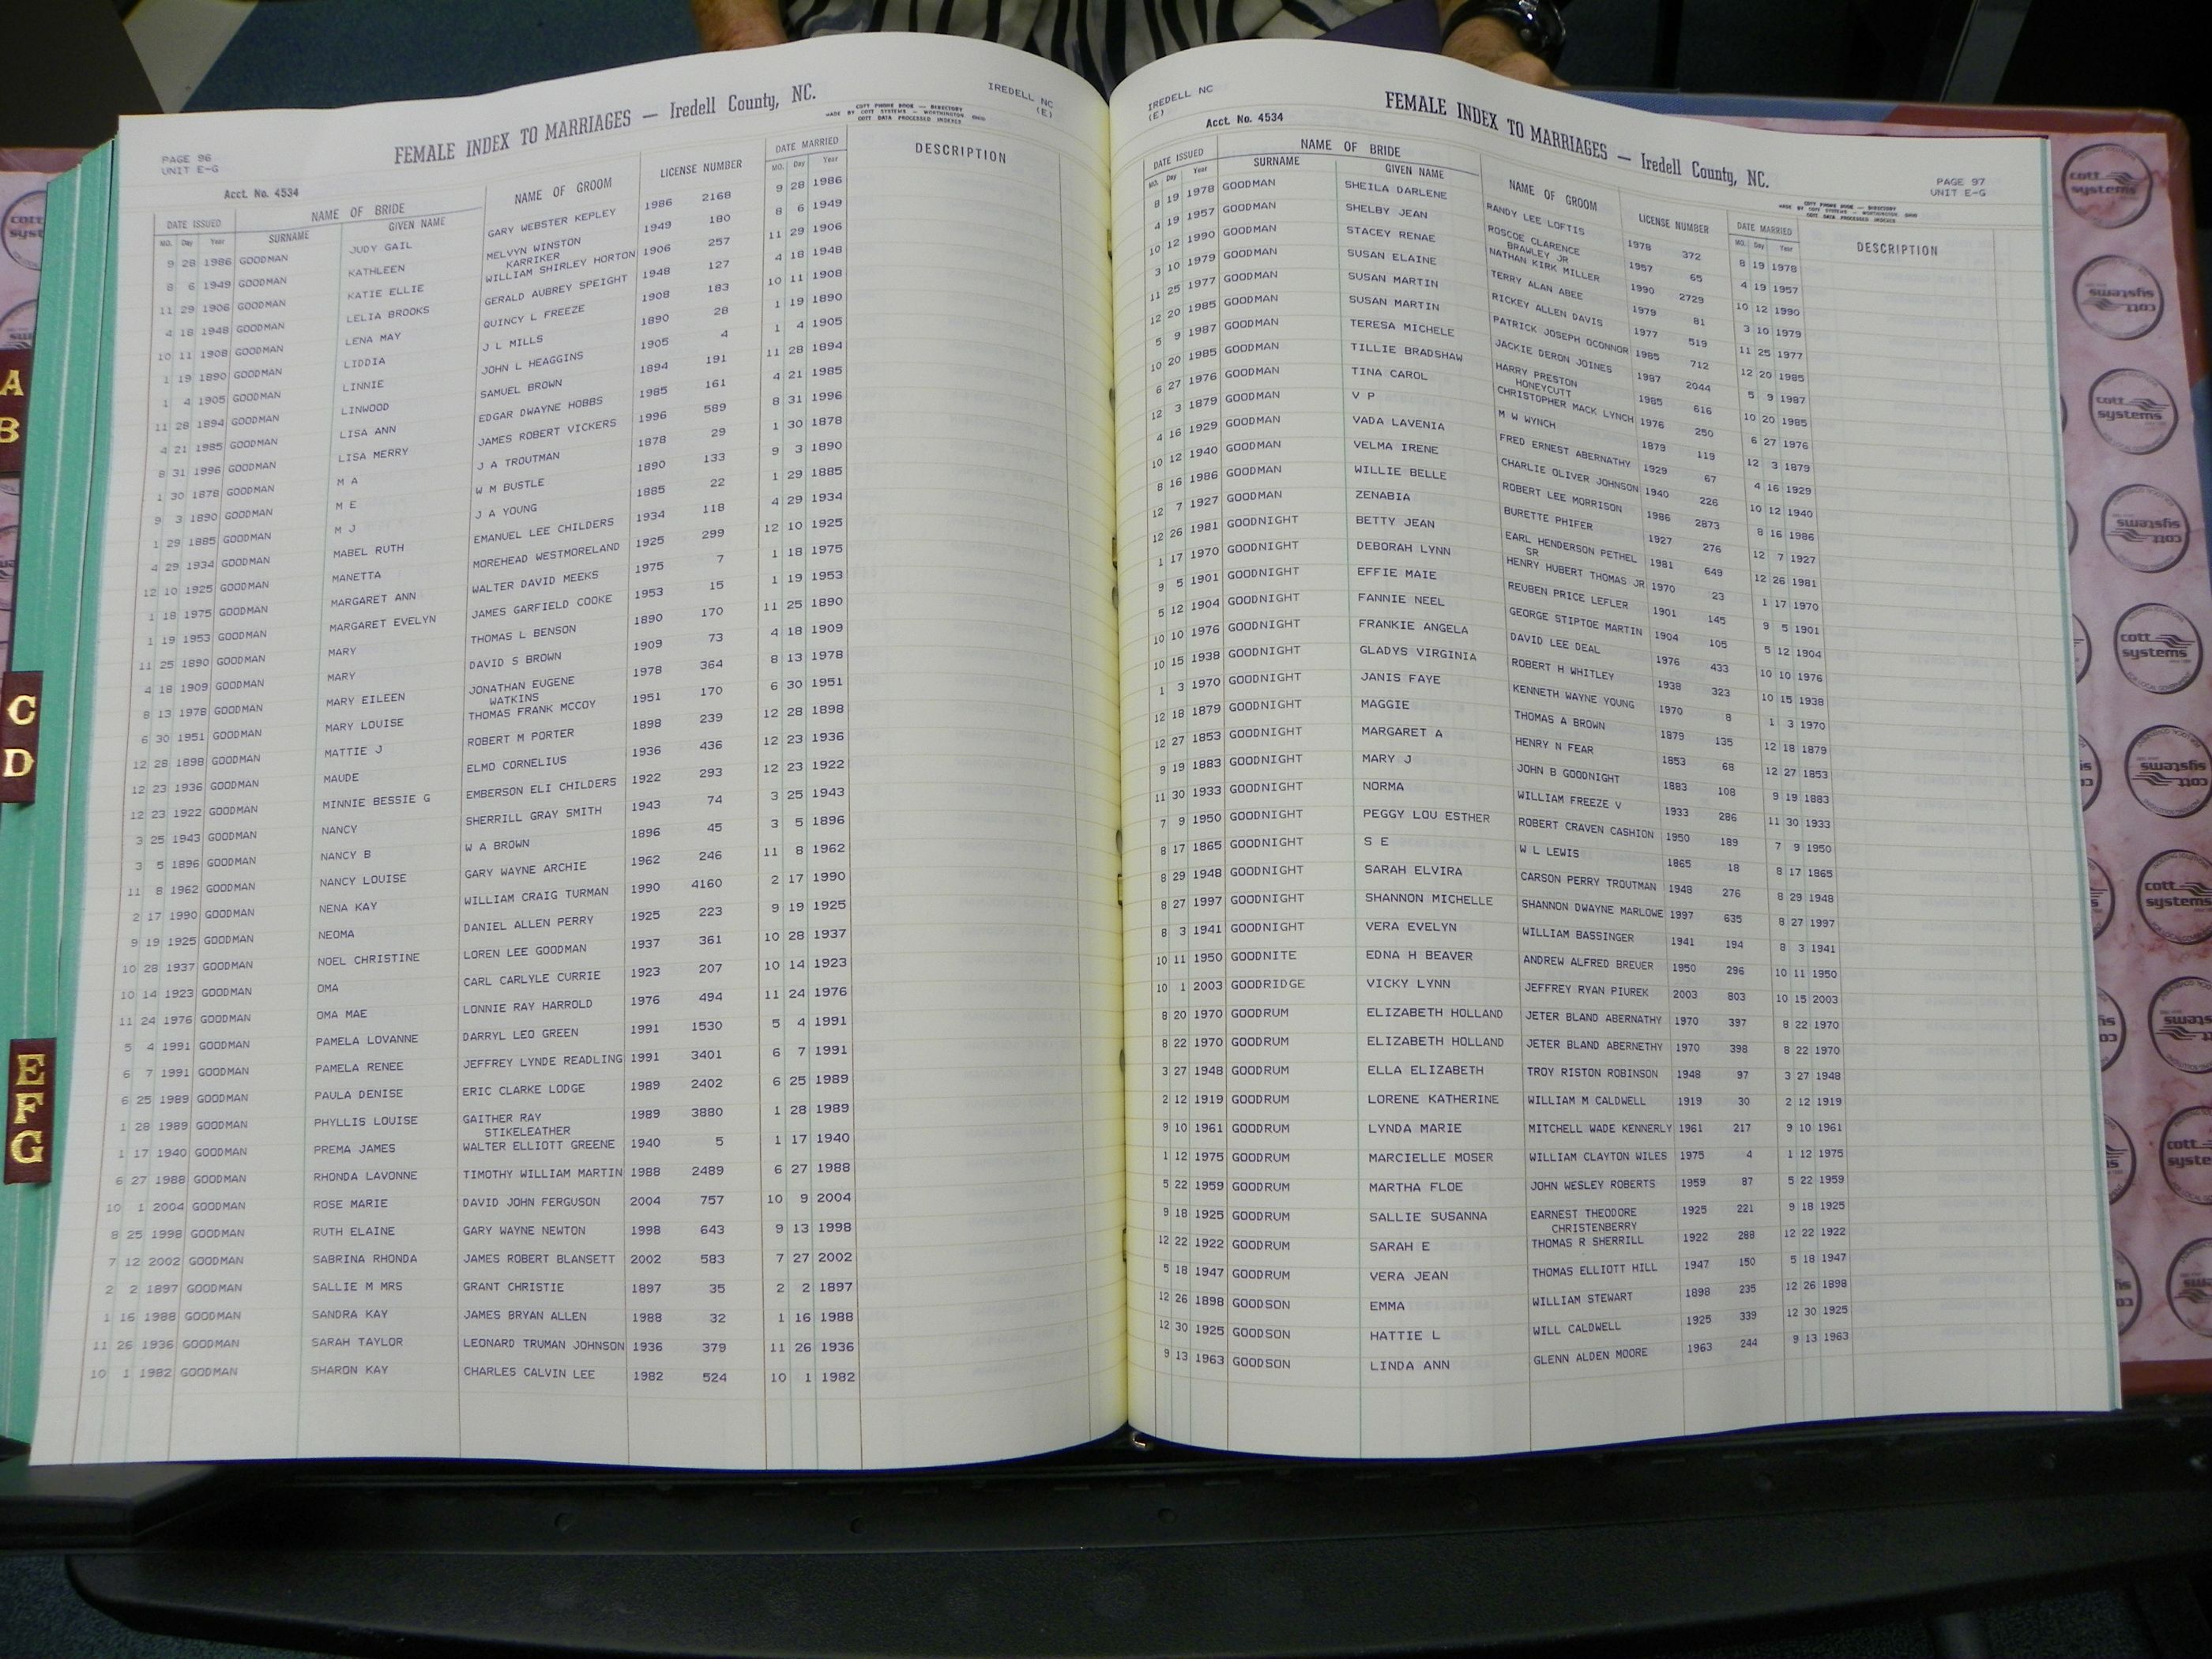 FEMALE INDEX TO MARRIAGES — Iredell County, NC.
IREDELL NC
(E)
COTT PHONE BOOK — DIRECTORY
MADE BY COTT SYSTEMS — WORTHINGTON OHIO
COTT DATA PROCESSED INDEXES
PAGE 96
UNIT E-G
Acct. No. 4534
DATE ISSUED NAME OF BRIDE NAME OF GROOM LICENSE NUMBER DATE MARRIED DESCRIPTION
MO. Day Year SURNAME GIVEN NAME MO. Day Year
9 28 1986 GOODMAN JUDY GAIL GARY WEBSTER KEPLEY 1986 2168 9 28 1986
8 6 1949 GOODMAN KATHLEEN MELVYN WINSTON 1949 180 8 6 1949
KARRIKER
11 29 1906 GOODMAN KATIE ELLIE WILLIAM SHIRLEY HORTON 1906 257 11 29 1906
4 18 1948 GOODMAN LELIA BROOKS GERALD AUBREY SPEIGHT 1948 127 4 18 1948
10 11 1908 GOODMAN LENA MAY QUINCY L FREEZE 1908 183 10 11 1908
1 19 1890 GOODMAN LIDDIA J L MILLS 1890 28 1 19 1890
1 4 1905 GOODMAN LINNIE JOHN L HEAGGINS 1905 4 1 4 1905
11 28 1894 GOODMAN LINWOOD SAMUEL BROWN 1894 191 11 28 1894
4 21 1985 GOODMAN LISA ANN EDGAR DWAYNE HOBBS 1985 161 4 21 1985
8 31 1996 GOODMAN LISA MERRY JAMES ROBERT VICKERS 1996 589 8 31 1996
1 30 1878 GOODMAN M A J A TROUTMAN 1878 29 1 30 1878
9 3 1890 GOODMAN M E W M BUSTLE 1890 133 9 3 1890
1 29 1885 GOODMAN M J J A YOUNG 1885 22 1 29 1885
4 29 1934 GOODMAN MABEL RUTH EMANUEL LEE CHILDERS 1934 118 4 29 1934
12 10 1925 GOODMAN MANETTA MOREHEAD WESTMORELAND 1925 299 12 10 1925
1 18 1975 GOODMAN MARGARET ANN WALTER DAVID MEEKS 1975 7 1 18 1975
1 19 1953 GOODMAN MARGARET EVELYN JAMES GARFIELD COOKE 1953 15 1 19 1953
11 25 1890 GOODMAN MARY THOMAS L BENSON 1890 170 11 25 1890
4 18 1909 GOODMAN MARY DAVID S BROWN 1909 73 4 18 1909
8 13 1978 GOODMAN MARY EILEEN JONATHAN EUGENE 1978 364 8 13 1978
WATKINS
6 30 1951 GOODMAN MARY LOUISE THOMAS FRANK MCCOY 1951 170 6 30 1951
12 28 1898 GOODMAN MATTIE J ROBERT M PORTER 1898 239 12 28 1898
12 23 1936 GOODMAN MAUDE ELMO CORNELIUS 1936 436 12 23 1936
12 23 1922 GOODMAN MINNIE BESSIE G EMBERSON ELI CHILDERS 1922 293 12 23 1922
3 25 1943 GOODMAN NANCY SHERRILL GRAY SMITH 1943 74 3 25 1943
3 5 1896 GOODMAN NANCY B W A BROWN 1896 45 3 5 1896
11 8 1962 GOODMAN NANCY LOUISE GARY WAYNE ARCHIE 1962 246 11 8 1962
2 17 1990 GOODMAN NENA KAY WILLIAM CRAIG TURMAN 1990 4160 2 17 1990
9 19 1925 GOODMAN NEOMA DANIEL ALLEN PERRY 1925 223 9 19 1925
10 28 1937 GOODMAN NOEL CHRISTINE LOREN LEE GOODMAN 1937 361 10 28 1937
10 14 1923 GOODMAN OMA CARL CARLYLE CURRIE 1923 207 10 14 1923
11 24 1976 GOODMAN OMA MAE LONNIE RAY HARROLD 1976 494 11 24 1976
5 4 1991 GOODMAN PAMELA LOVANNE DARRYL LEO GREEN 1991 1530 5 4 1991
6 7 1991 GOODMAN PAMELA RENEE JEFFREY LYNDE READLING 1991 3401 6 7 1991
6 25 1989 GOODMAN PAULA DENISE ERIC CLARKE LODGE 1989 2402 6 25 1989
1 28 1989 GOODMAN PHYLLIS LOUISE GAITHER RAY 1989 3880 1 28 1989
STIKELEATHER
1 17 1940 GOODMAN PREMA JAMES WALTER ELLIOTT GREENE 1940 5 1 17 1940
6 27 1988 GOODMAN RHONDA LAVONNE TIMOTHY WILLIAM MARTIN 1988 2489 6 27 1988
10 1 2004 GOODMAN ROSE MARIE DAVID JOHN FERGUSON 2004 757 10 9 2004
8 25 1998 GOODMAN RUTH ELAINE GARY WAYNE NEWTON 1998 643 9 13 1998
7 12 2002 GOODMAN SABRINA RHONDA JAMES ROBERT BLANSETT 2002 583 7 27 2002
2 2 1897 GOODMAN SALLIE M MRS GRANT CHRISTIE 1897 35 2 2 1897
1 16 1988 GOODMAN SANDRA KAY JAMES BRYAN ALLEN 1988 32 1 16 1988
11 26 1936 GOODMAN SARAH TAYLOR LEONARD TRUMAN JOHNSON 1936 379 11 26 1936
10 1 1982 GOODMAN SHARON KAY CHARLES CALVIN LEE 1982 524 10 1 1982
IREDELL NC
(E)
FEMALE INDEX TO MARRIAGES — Iredell County, NC.
Acct. No. 4534
PAGE 97
UNIT E-G
COTT PHONE BOOK — DIRECTORY
MADE BY COTT SYSTEMS — WORTHINGTON OHIO
COTT DATA PROCESSED INDEXES
DATE ISSUED NAME OF BRIDE NAME OF GROOM LICENSE NUMBER DATE MARRIED DESCRIPTION
MO. Day Year SURNAME GIVEN NAME MO. Day Year
8 19 1978 GOODMAN SHEILA DARLENE RANDY LEE LOFTIS 1978 372 8 19 1978
4 19 1957 GOODMAN SHELBY JEAN ROSCOE CLARENCE 1957 65 4 19 1957
BRAWLEY JR
10 12 1990 GOODMAN STACEY RENAE NATHAN KIRK MILLER 1990 2729 10 12 1990
3 10 1979 GOODMAN SUSAN ELAINE TERRY ALAN ABEE 1979 81 3 10 1979
11 25 1977 GOODMAN SUSAN MARTIN RICKEY ALLEN DAVIS 1977 519 11 25 1977
12 20 1985 GOODMAN SUSAN MARTIN PATRICK JOSEPH OCONNOR 1985 712 12 20 1985
5 9 1987 GOODMAN TERESA MICHELE JACKIE DERON JOINES 1987 2044 5 9 1987
10 20 1985 GOODMAN TILLIE BRADSHAW HARRY PRESTON 1985 616 10 20 1985
HONEYCUTT
6 27 1976 GOODMAN TINA CAROL CHRISTOPHER MACK LYNCH 1976 250 6 27 1976
12 3 1879 GOODMAN V P M W WYNCH 1879 119 12 3 1879
4 16 1929 GOODMAN VADA LAVENIA FRED ERNEST ABERNATHY 1929 67 4 16 1929
10 12 1940 GOODMAN VELMA IRENE CHARLIE OLIVER JOHNSON 1940 226 10 12 1940
8 16 1986 GOODMAN WILLIE BELLE ROBERT LEE MORRISON 1986 2873 8 16 1986
12 7 1927 GOODMAN ZENABIA BURETTE PHIFER 1927 276 12 7 1927
12 26 1981 GOODNIGHT BETTY JEAN EARL HENDERSON PETHEL 1981 649 12 26 1981
SR
1 17 1970 GOODNIGHT DEBORAH LYNN HENRY HUBERT THOMAS JR 1970 23 1 17 1970
9 5 1901 GOODNIGHT EFFIE MAIE REUBEN PRICE LEFLER 1901 145 9 5 1901
5 12 1904 GOODNIGHT FANNIE NEEL GEORGE STIPTOE MARTIN 1904 105 5 12 1904
10 10 1976 GOODNIGHT FRANKIE ANGELA DAVID LEE DEAL 1976 433 10 10 1976
10 15 1938 GOODNIGHT GLADYS VIRGINIA ROBERT H WHITLEY 1938 323 10 15 1938
1 3 1970 GOODNIGHT JANIS FAYE KENNETH WAYNE YOUNG 1970 8 1 3 1970
12 18 1879 GOODNIGHT MAGGIE THOMAS A BROWN 1879 135 12 18 1879
12 27 1853 GOODNIGHT MARGARET A HENRY N FEAR 1853 68 12 27 1853
9 19 1883 GOODNIGHT MARY J JOHN B GOODNIGHT 1883 108 9 19 1883
11 30 1933 GOODNIGHT NORMA WILLIAM FREEZE V 1933 286 11 30 1933
7 9 1950 GOODNIGHT PEGGY LOU ESTHER ROBERT CRAVEN CASHION 1950 189 7 9 1950
8 17 1865 GOODNIGHT S E W L LEWIS 1865 18 8 17 1865
8 29 1948 GOODNIGHT SARAH ELVIRA CARSON PERRY TROUTMAN 1948 276 8 29 1948
8 27 1997 GOODNIGHT SHANNON MICHELLE SHANNON DWAYNE MARLOWE 1997 635 8 27 1997
8 3 1941 GOODNIGHT VERA EVELYN WILLIAM BASSINGER 1941 194 8 3 1941
10 11 1950 GOODNITE EDNA H BEAVER ANDREW ALFRED BREUER 1950 296 10 11 1950
10 1 2003 GOODRIDGE VICKY LYNN JEFFREY RYAN PIUREK 2003 803 10 15 2003
8 20 1970 GOODRUM ELIZABETH HOLLAND JETER BLAND ABERNATHY 1970 397 8 22 1970
8 22 1970 GOODRUM ELIZABETH HOLLAND JETER BLAND ABERNETHY 1970 398 8 22 1970
3 27 1948 GOODRUM ELLA ELIZABETH TROY RISTON ROBINSON 1948 97 3 27 1948
2 12 1919 GOODRUM LORENE KATHERINE WILLIAM M CALDWELL 1919 30 2 12 1919
9 10 1961 GOODRUM LYNDA MARIE MITCHELL WADE KENNERLY 1961 217 9 10 1961
1 12 1975 GOODRUM MARCIELLE MOSER WILLIAM CLAYTON WILES 1975 4 1 12 1975
5 22 1959 GOODRUM MARTHA FLOE JOHN WESLEY ROBERTS 1959 87 5 22 1959
9 18 1925 GOODRUM SALLIE SUSANNA EARNEST THEODORE 1925 221 9 18 1925
CHRISTENBERRY
12 22 1922 GOODRUM SARAH E THOMAS R SHERRILL 1922 288 12 22 1922
5 18 1947 GOODRUM VERA JEAN THOMAS ELLIOTT HILL 1947 150 5 18 1947
12 26 1898 GOODSON EMMA WILLIAM STEWART 1898 235 12 26 1898
12 30 1925 GOODSON HATTIE L WILL CALDWELL 1925 339 12 30 1925
9 13 1963 GOODSON LINDA ANN GLENN ALDEN MOORE 1963 244 9 13 1963
A
B
C
D
E
F
G
cott
systems
cott
systems
cott
systems
cott
systems